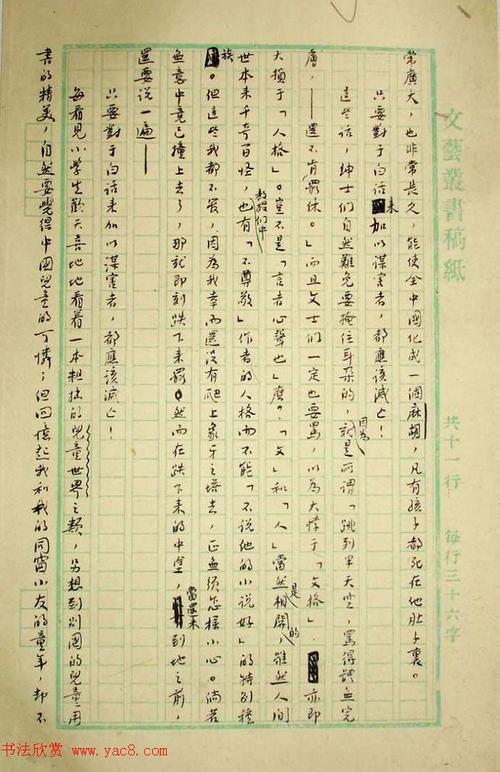 文藝叢書稿紙 共十一行 每行三十六字
榮廣大,也非常長久,能使全中國化成一個麻胡,凡有孩子都死在他肚子裏。
只要對于白話來加以謀害者,都應該滅亡!
這些話,紳士們自然難免要掩住耳朵的,因為就是所謂「跳到半天空,罵得體無完
膚,——還不肯罷休。」而且文士們一定也要罵,以為大悖于「文格」,亦即
大損于「人格」。豈不是「言者心聲也」麼?「文」和「人」當然是相關的,雖然人間
世本來千奇百怪,教授們中也有「不尊敬」作者的人格而不能「不說他的小說好」的特別種
族。但這些我都不管,因為我幸而還沒有爬上象牙之塔去,正無須怎樣小心。倘若
無意中竟已撞上去了,那就即刻跌下來罷。然而在跌下來的中途,當還未到地之前,
還要說一遍——
只要對于白話來加以謀害者,都應該滅亡!
每看見小學生歡天喜地地看着一本粗拙的兒童世界之類,另想到別國的兒童用
書的精美,自然要覺得中國兒童的可憐;但回憶起我和我的同窗小友的童年,卻不
书法欣赏 www.yac8.com